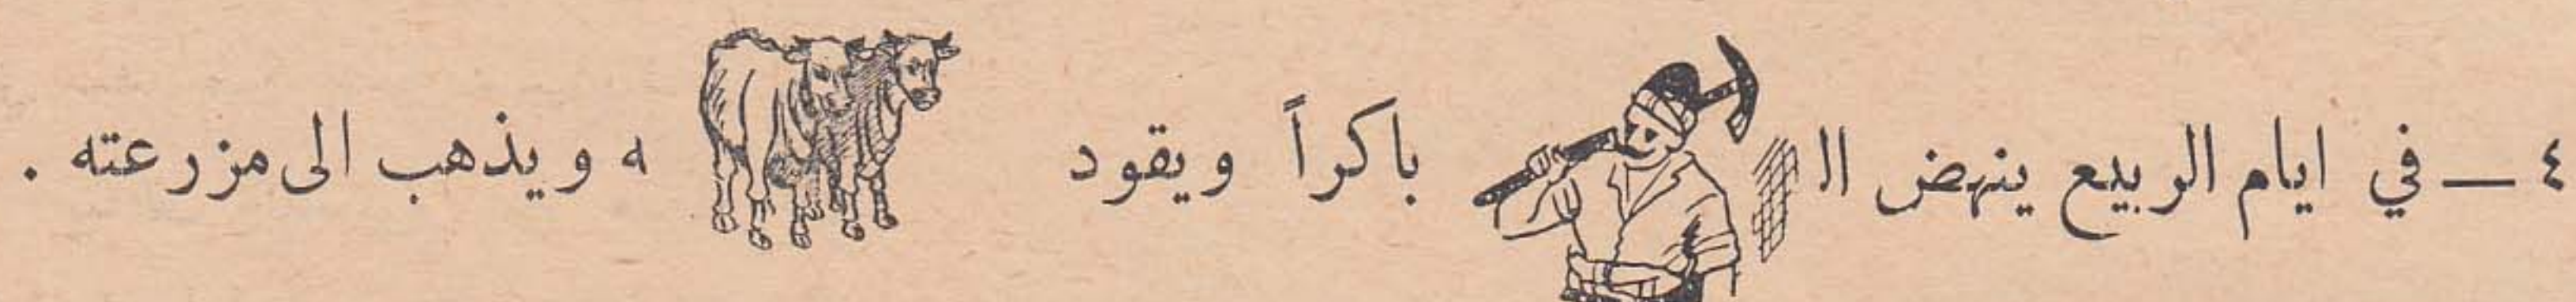 ٤ — في ايام الربيع ينهض الـ باكراً ويقود ه ويذهب الى مزرعته .